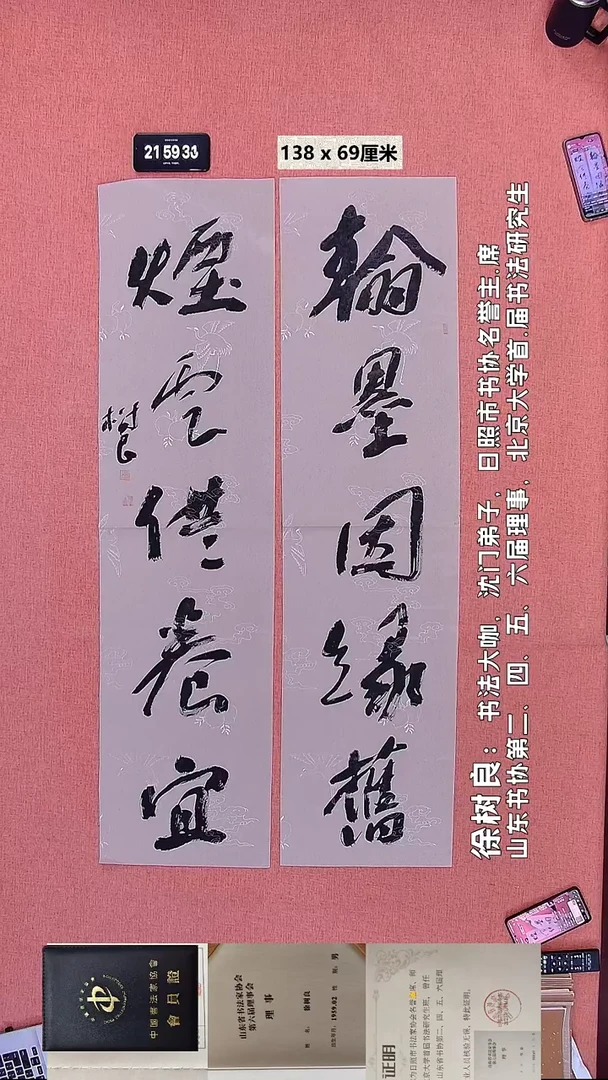 21 59 33
138 x 69厘米
翰墨因缘舊
煙雲供養宜
樹良
徐树良：书法大咖，沈门弟子，日照市书协名誉主.席
山东书协第二、四、五、六届理事，北京大学首.届书法研究生
中国书法家协会
會員證
山东省书法家协会
第六届理事会
理事
姓 名： 徐树良
性 别： 男
出生年月： 1959.02
证明